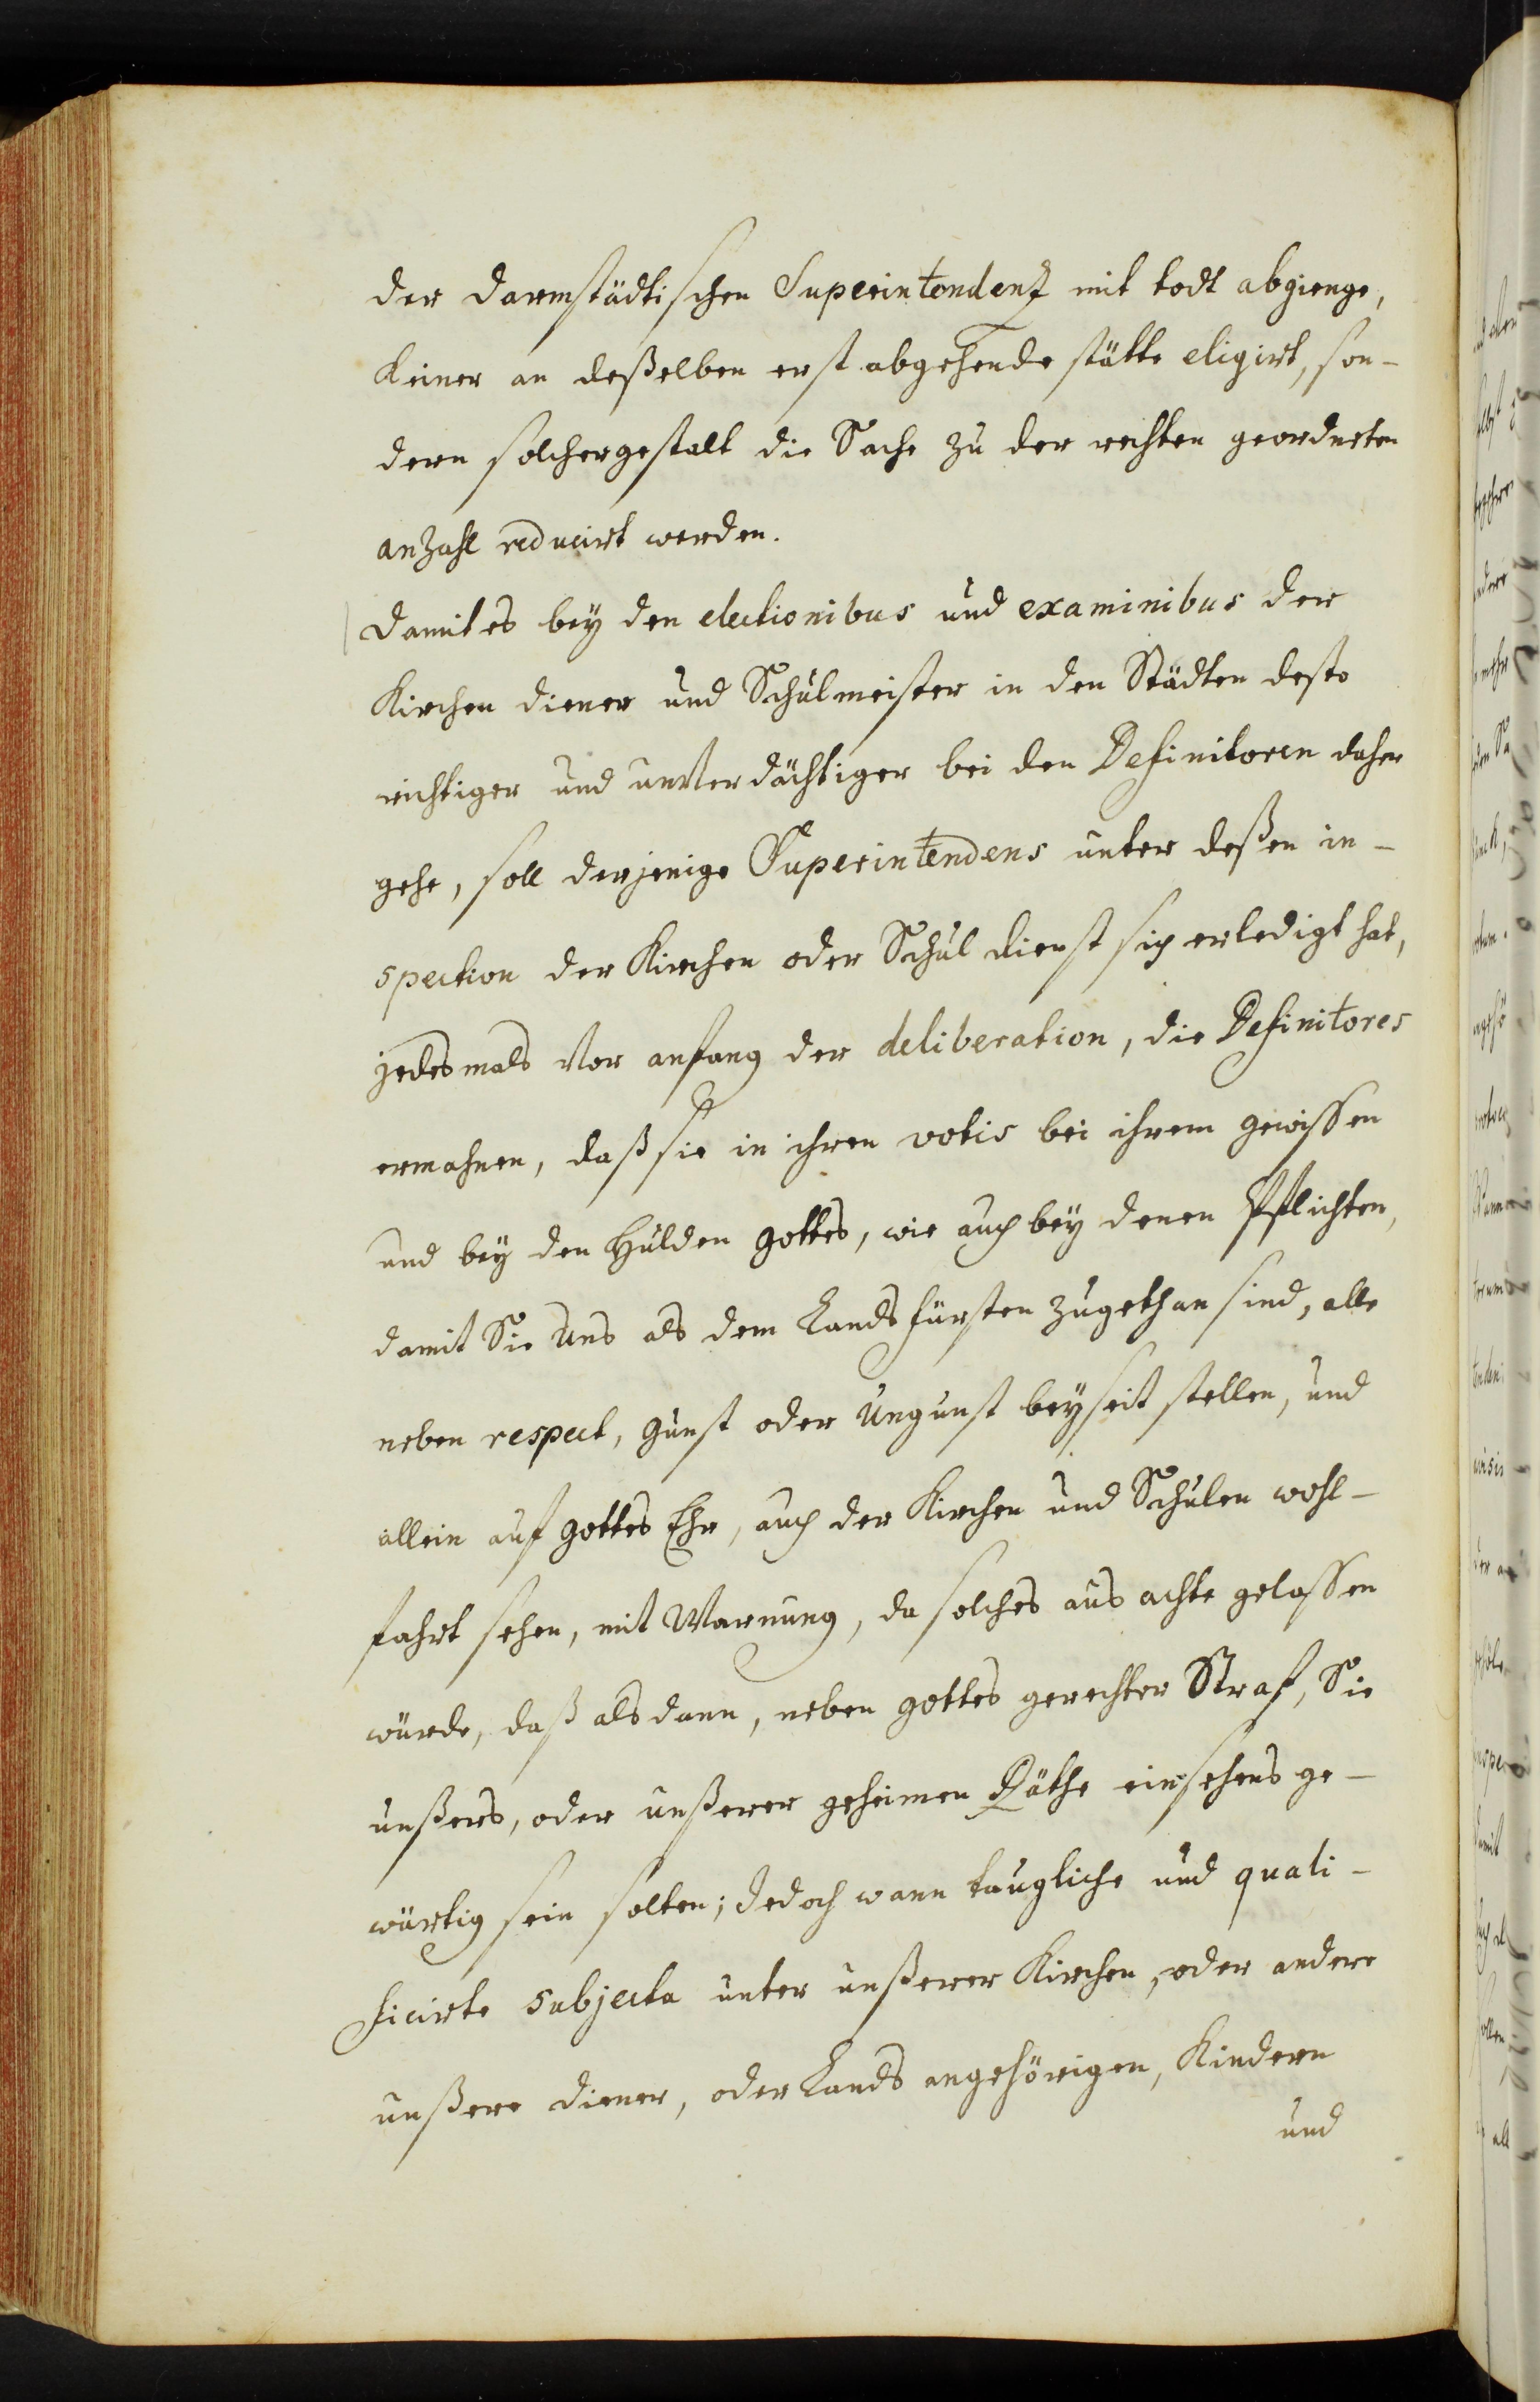 der Darmstädtischen Superintendenz mit todt abgienge,
keiner an deßelben erst abgehende stätte eligirt, son-
dern solchergestalt die Sache zu der rechten geordneten
anzahl reducirt werden.
Damit es bey den electionibus und examinibus der
Kirchen diener und Schulmeister in den Städten desto
richtiger und unverdächtiger bei den Definitoren daher
gehe, soll derjenige Superintendens unter deßen in-
spection der Kirchen oder Schul dienst sich erledigt hat,
jedesmals vor anfang der deliberation, die Definitores
ermahnen, daß sie in ihren votis bei ihrem gewissen
und bey den Hulden gottes, wie auch bey denen Pflichten,
damit Sie Uns als dem Landsfürsten zugethan sind, alle
neben respect, gunst oder Ungunst beyseit stellen, und
allein auf gottes Ehr, auch der Kirchen und Schulen wohl-
fahrt sehen, mit Warnung, da solches aus achte gelassen
würde, daß alsdann, neben gottes gerechter Straf, Sie
unßers, oder unßerer geheimen Räthe einsehens ge-
wärtig sein solten; Jedoch wann taugliche und quali-
ficirte subjecta unter unßerer Kirchen, oder andere
unßere diener, oder Lands angehörigen, Kindern
und